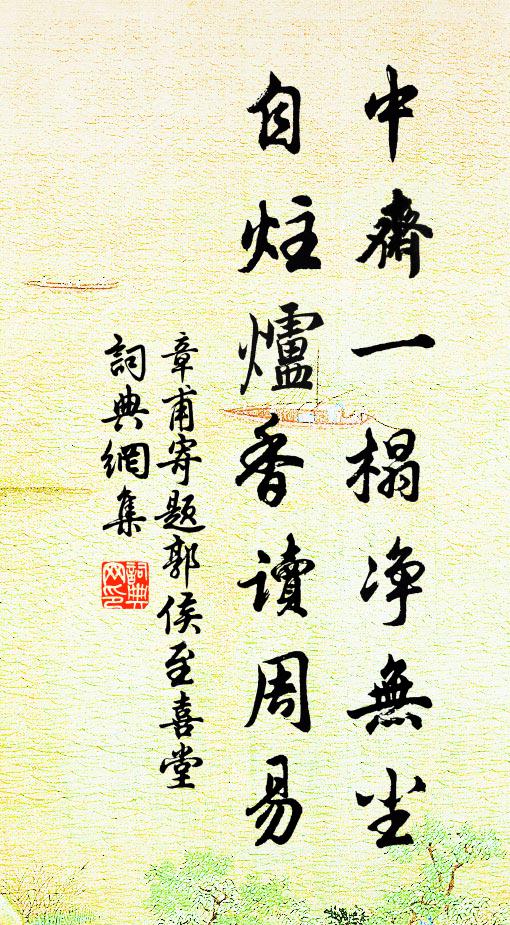 中齋一榻净無尘
自炷爐香讀周易
章甫寄題郭侯至喜堂
詞典網集
詞典
网印